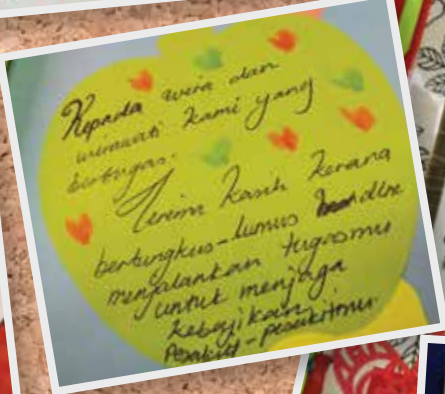 Kepada wira dan
wirawati kami yang
bertugas.
Terima Kasih Kerana
bertungkus-lumus
menjalankan tugasmu
untuk menjaga
kebajikan
Pesakit-pesakitmu.